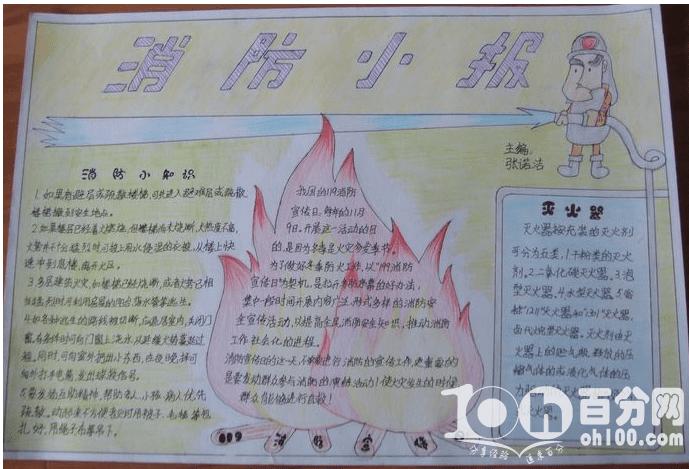 消防小报
主编:
张诺洁
消防小知识
1.如果有避层或疏散楼梯,可先进入避难层或疏散
楼梯撤到安全地点。
2.如果楼层已经着火燃烧,但楼梯尚未烧断,火势度不高,
火势并不十分猛烈时,可披上用水浸湿的衣被,从楼上快
速冲到底楼,离开火区。
3.多层建筑火灾,如楼梯已经烧断,或者火势已相
当猛烈时可利用房屋的阳台落水管等逃生。
4.如各种逃生的路线被切断,应退居室内,关闭门
窗,有条件时可向门窗上浇水,以延缓火势蔓延过
程,同时,可向室外扔出小东西,在夜晚择可
向外打手电筒,发出求救信号。
5.要发扬互助精神,帮助老人、小孩、病人优先
疏散。动起来不方便者及时用被子、毛毯等包
扎好,用绳子布条吊下。
我国的119消防
宣传日,每年的11月
9日。开展这一活动的目
的,是因为冬季是火灾多发季节。
为了做好冬季防火工作,以"119消防
宣传日"为契机,是拉开冬防序幕的好办法,
集中一段时间开展内容广泛,形式多样的消防安
全宣传活动,以提高全民消防安全知识,推动消防
工作社会化的进程。
消防宣传日的这一天,不单要进行消防的宣传工作,更重要的
是要发动群众参与消防的演练活动!使火灾发生的时候
群众能够进行自救!
消防安全
灭火器
灭火器按充装的灭火剂
可分为五类。1.干粉类的灭火
剂。2.二氧化碳灭火器。3.泡
型灭火器。4.水型灭火器。5.卤
代烷型灭火器。灭火剂由灭
火器上的贮气瓶,释放的压
缩气体的或液化气体的压
百分网
oh100.com
分享经验 追求百分